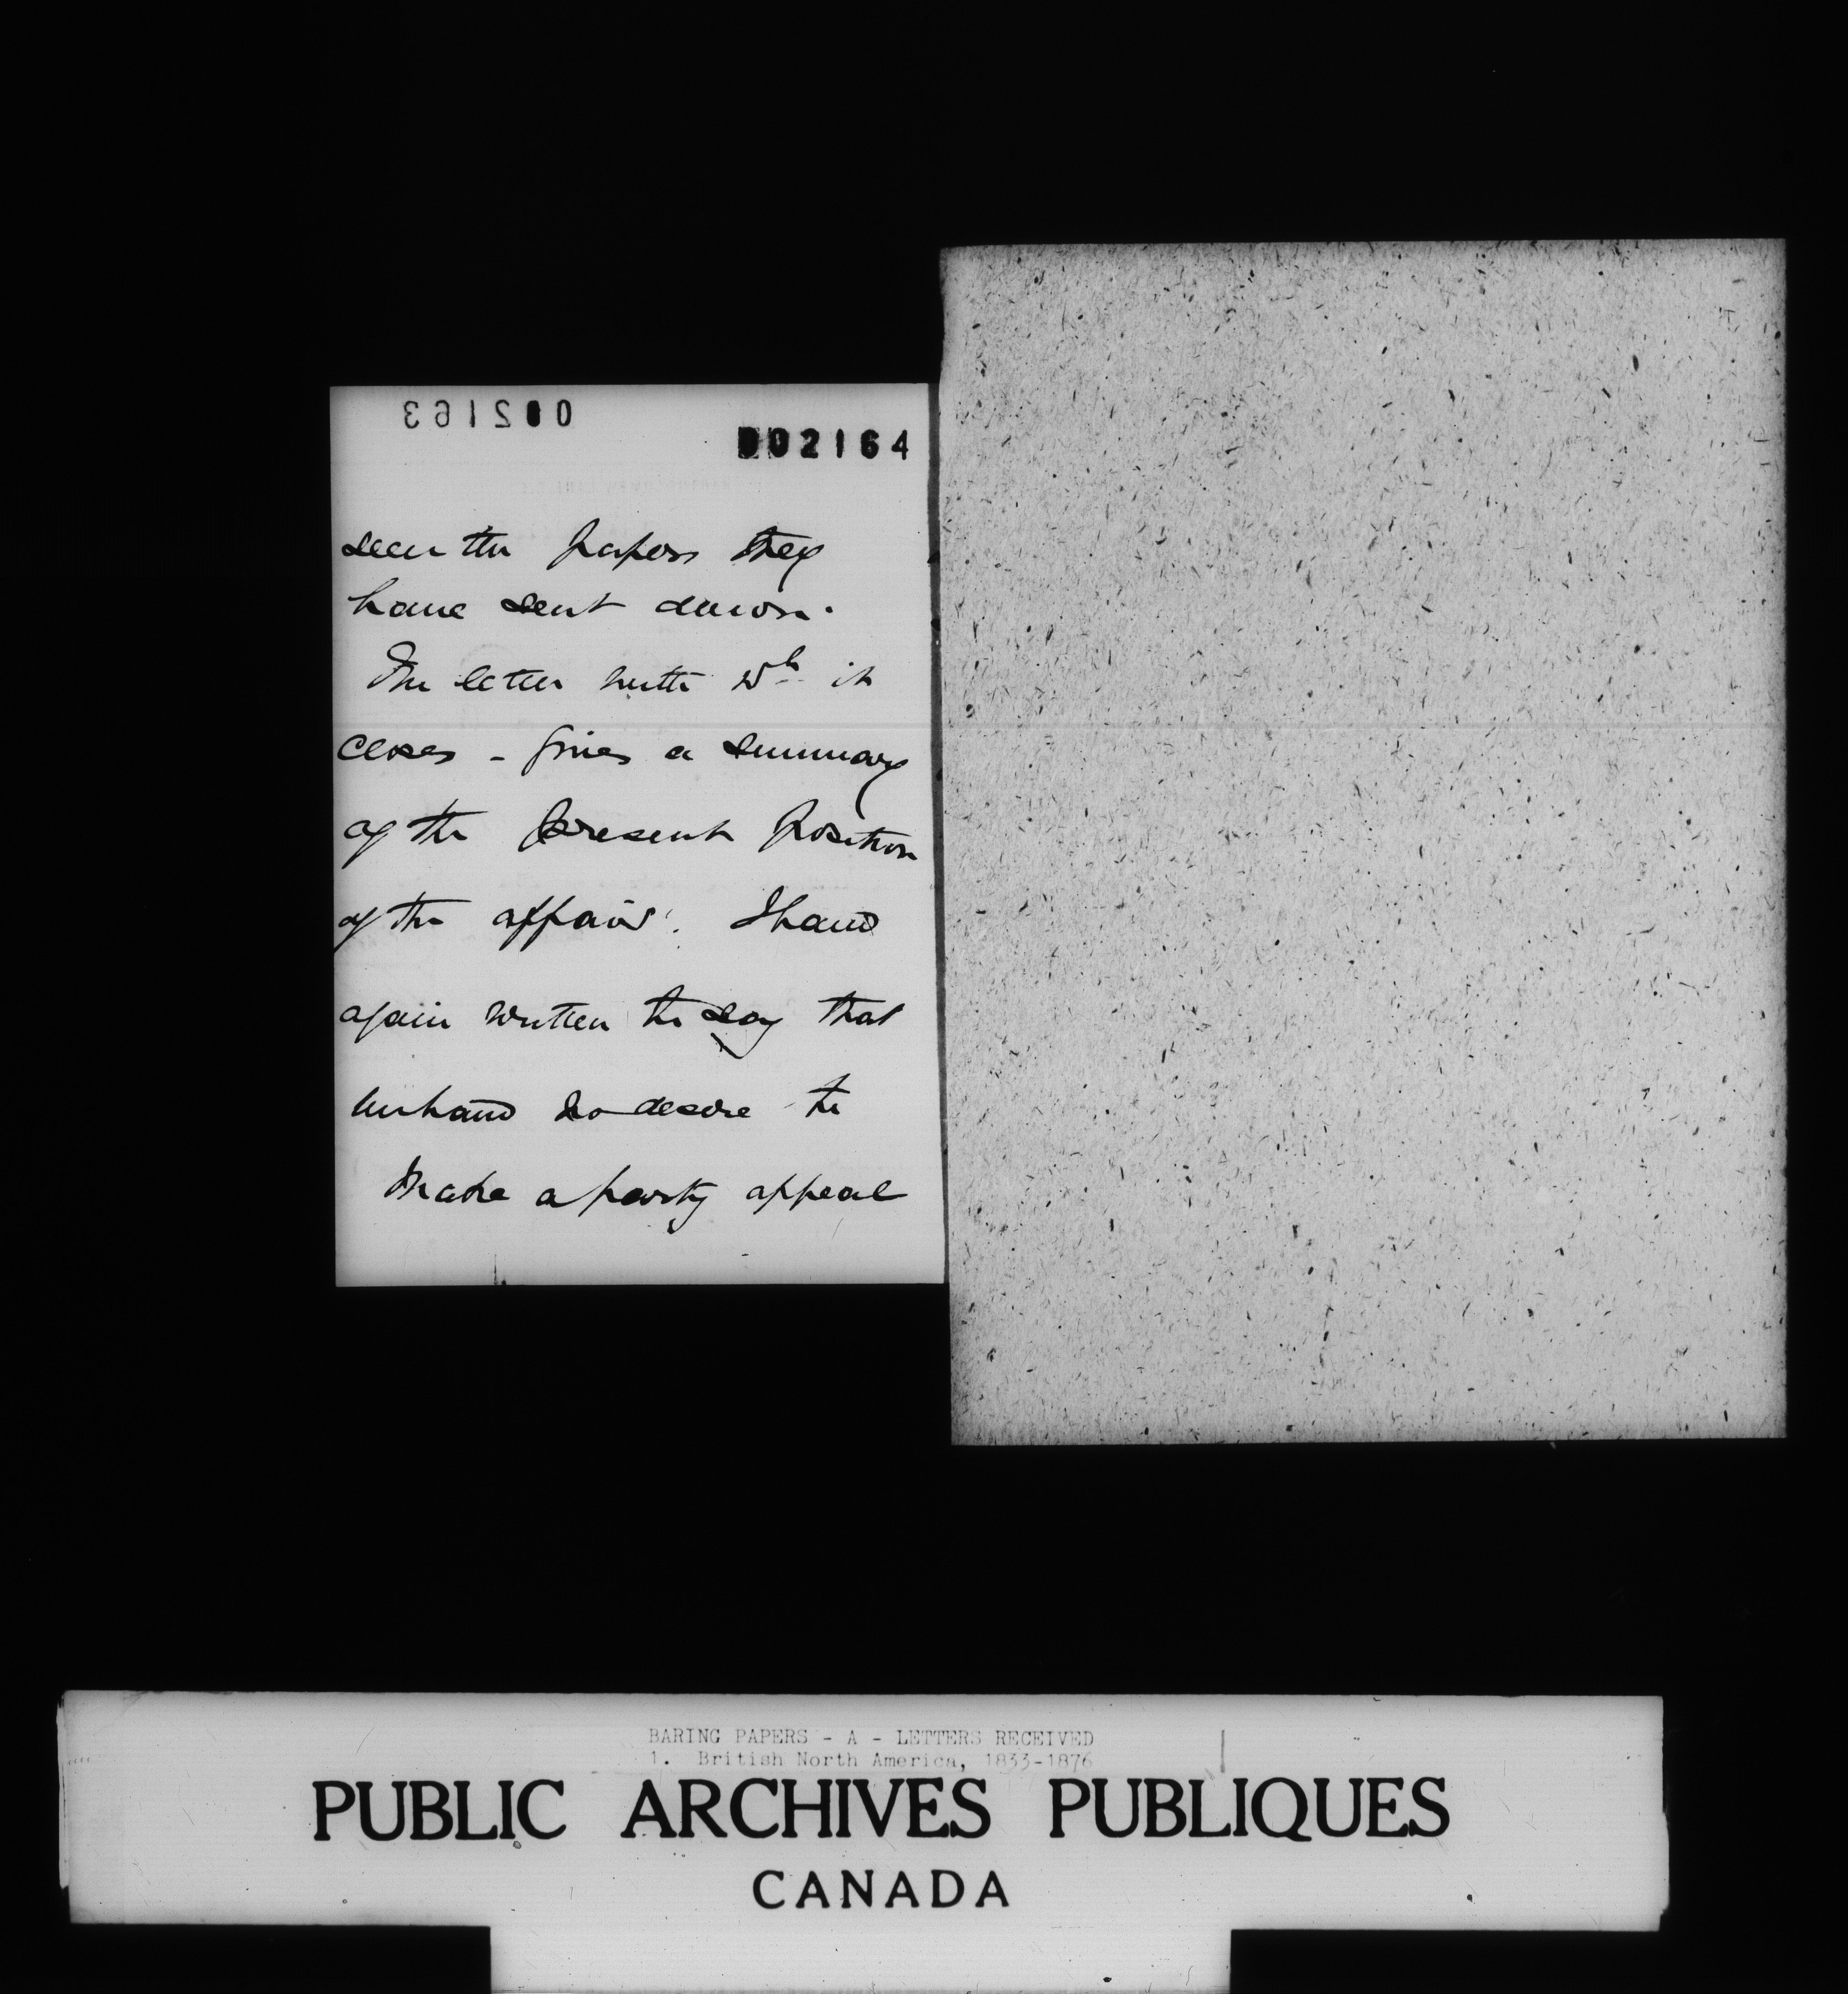 002163
002164
seen the papers they
have sent down.
The letter with wh it
closes - gives a summary
of the present position
of the affair. I have
again written to say that
we have no desire to
make a party appeal
BARING PAPERS - A - LETTERS RECEIVED
1. British North America, 1833-1876
PUBLIC ARCHIVES PUBLIQUES
CANADA